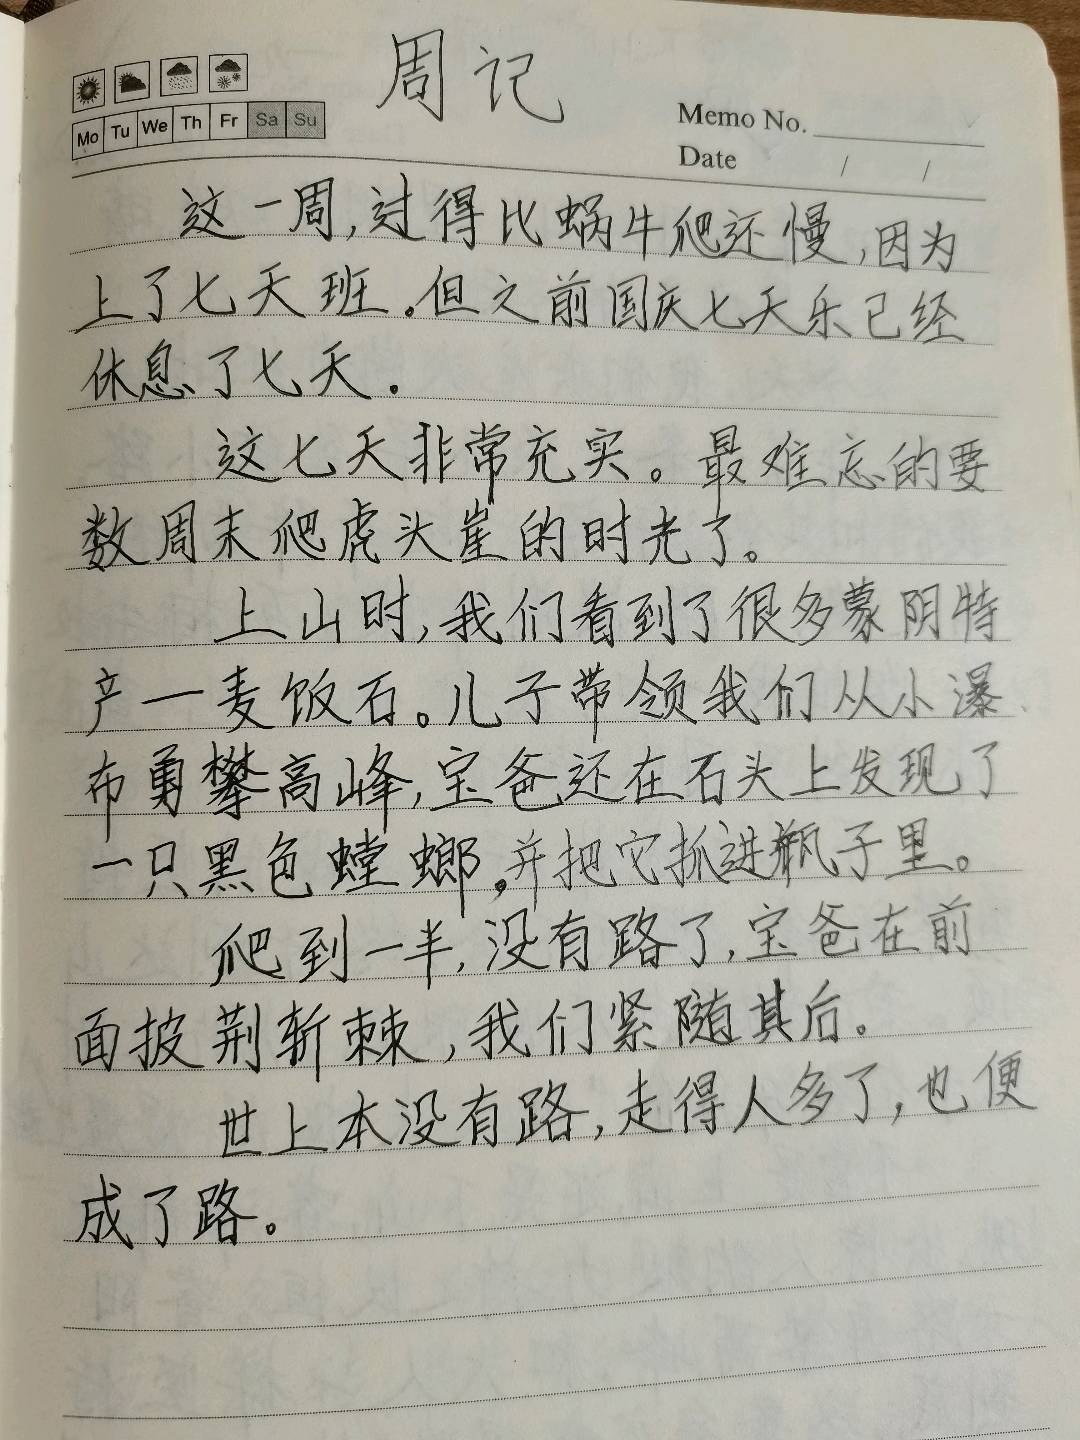 周记
Mo Tu We Th Fr Sa Su
Memo No.
Date / /
这一周,过得比蜗牛爬还慢,因为
上了七天班。但之前国庆七天乐已经
休息了七天.
这七天非常充实。最难忘的要
数周末爬虎头崖的时光了。
上山时,我们看到了很多蒙阴特
产一麦饭石。儿子带领我们从小瀑
布勇攀高峰,宝爸还在石头上发现了
一只黑色螳螂,并把它抓进瓶子里。
爬到一半,没有路了,宝爸在前
面披荆斩棘,我们紧随其后。
世上本没有路,走得人多了,也便
成了路。